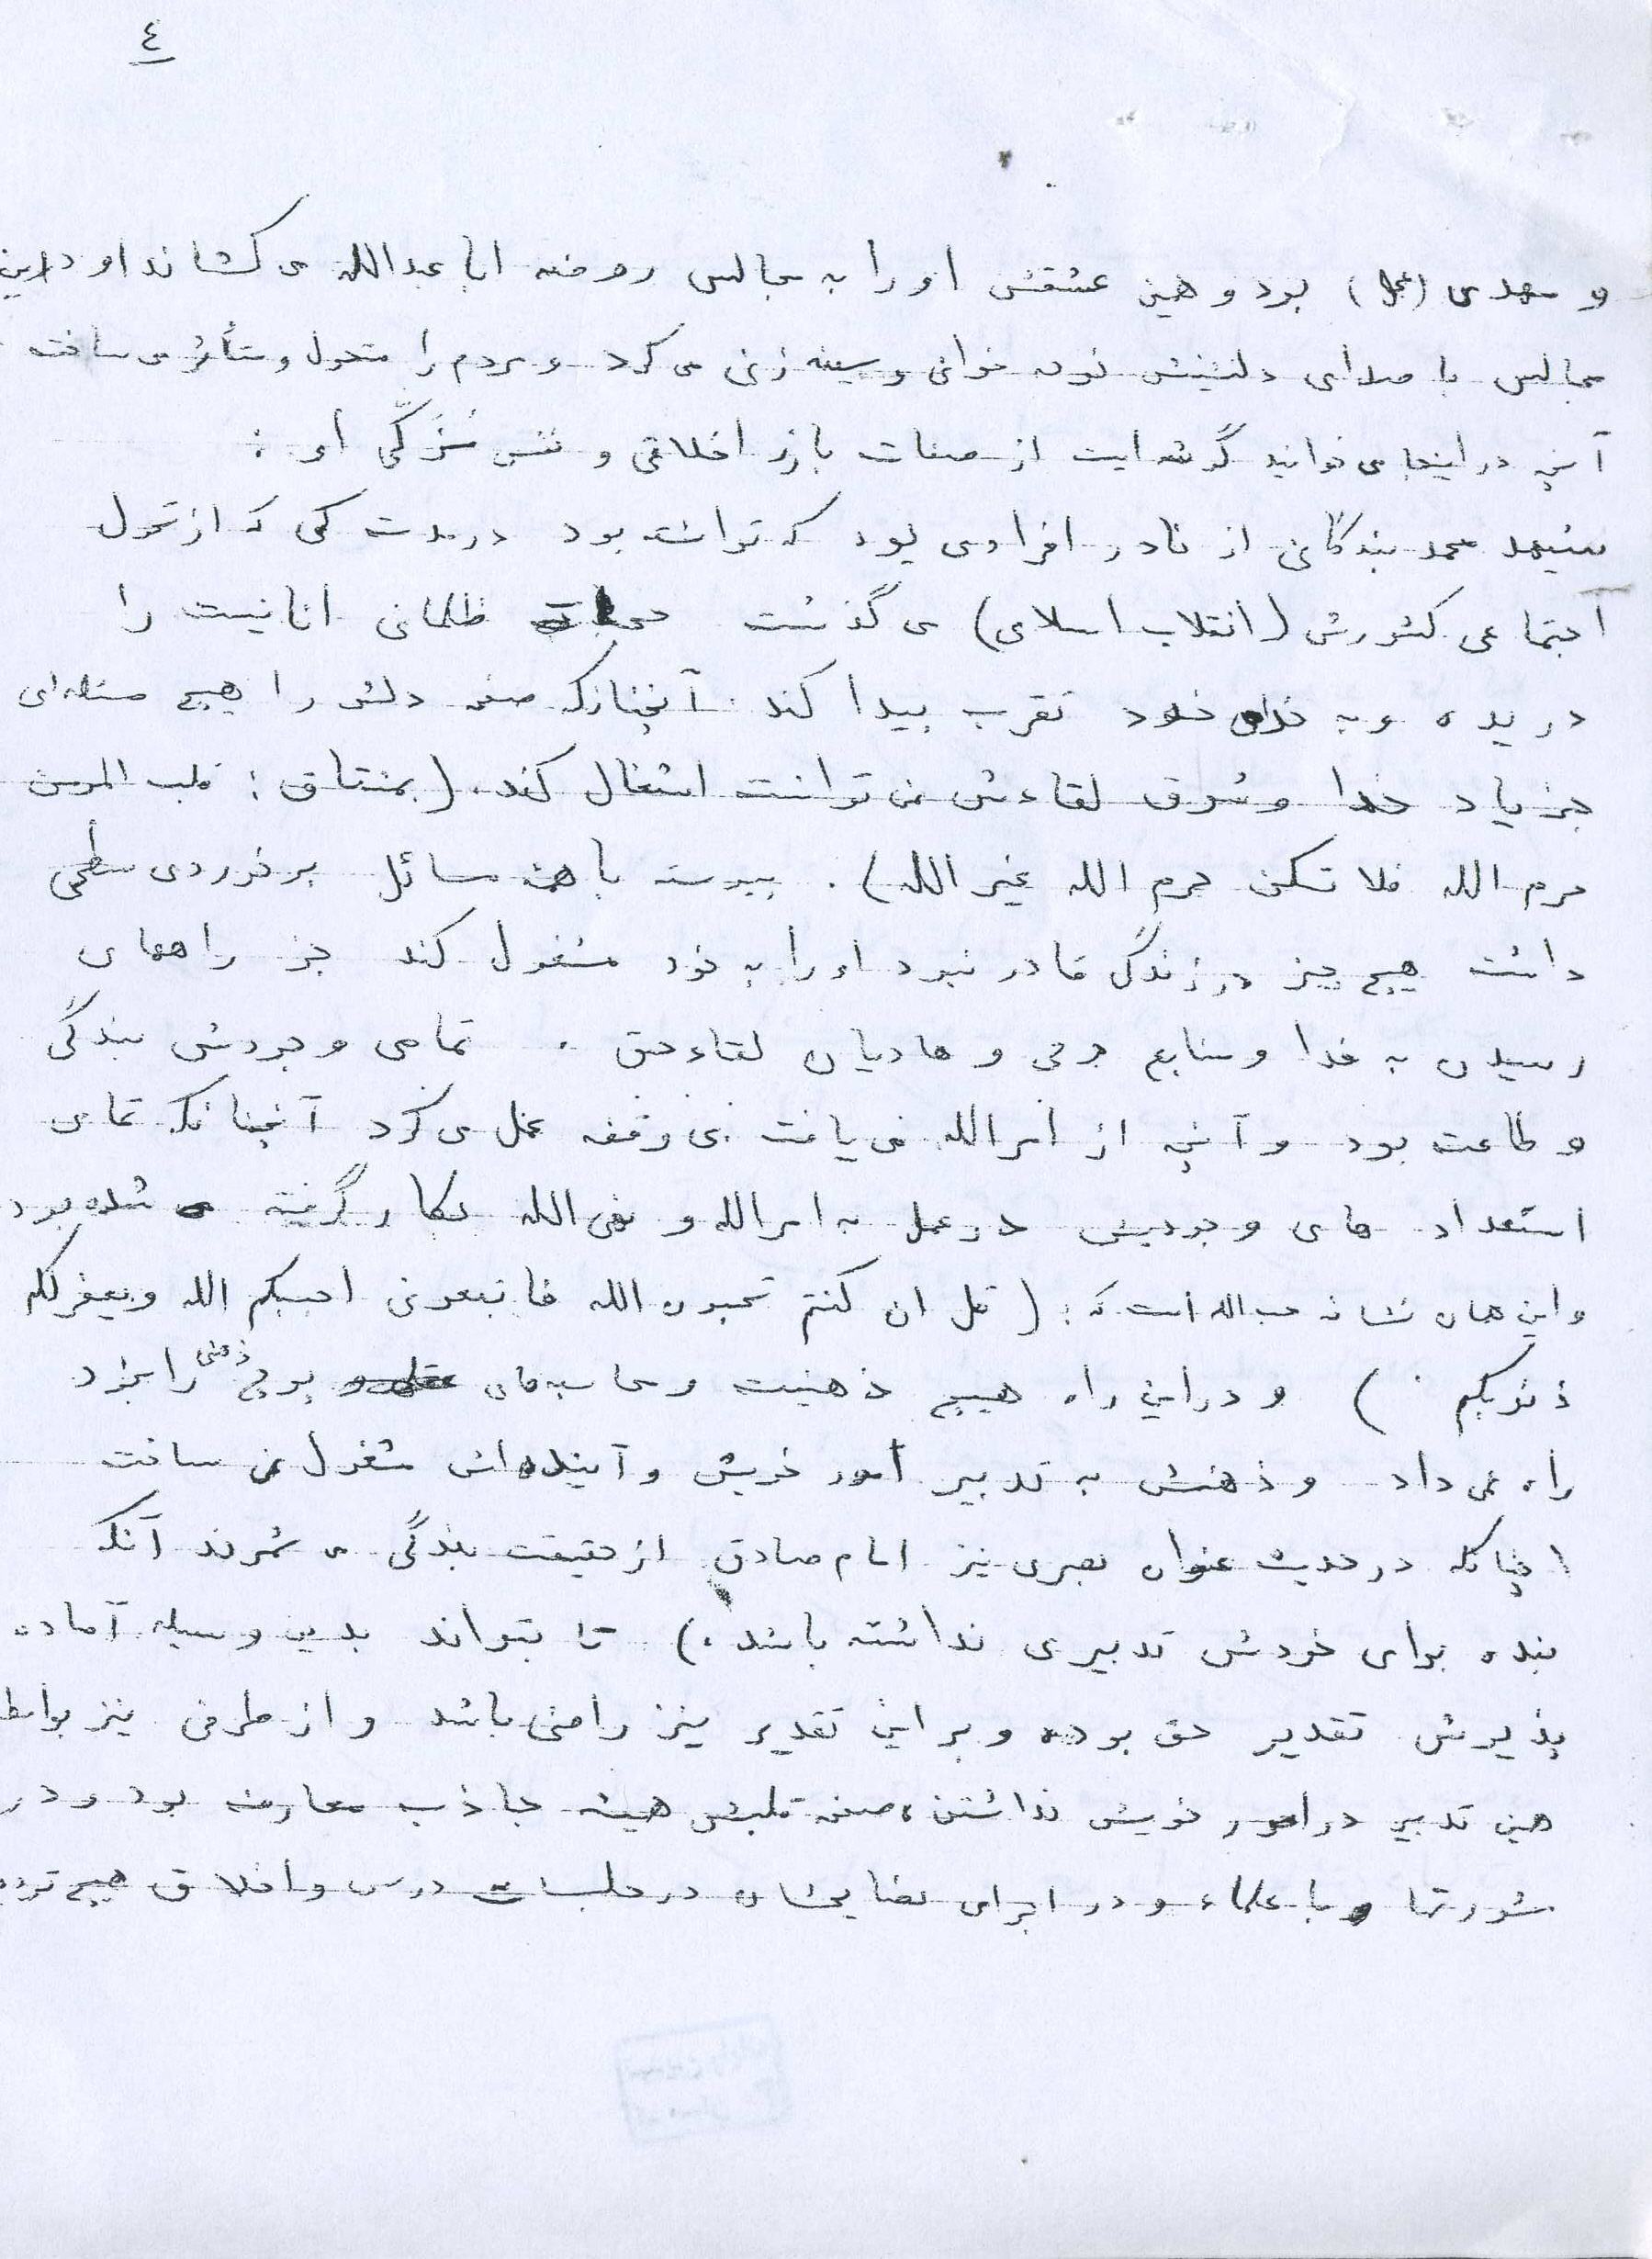 ٤
و مهدی (عج) بود و همین عشقش او را به مجالس روضه ابا عبدالله می کشاند او در این
مجالس با صدای دلنشینش نوحه خوانی و سینه زنی می کرد و مردم را متحول و متأثر می ساخت
آنچه در اینجا می خوانید گوشه ایست از صفات بارز اخلاقی و نفس مُزکّی او :
شهید محمد بندگانی از نادر افرادی بود که توانسته بود در مدت کمی که از تحول
اجتماعی کشورش (انقلاب اسلامی) می گذشت ظلمانی انانیت را
دریده و به خدای خود تقرب پیدا کند . آنچنانکه صفحه دلش را هیچ مسئله ای
جز یاد خدا و شوق لقاءش نمی توانست اشغال کند . (بمنطاق : قلب المومن
حرم الله فلا تسکن حرم الله غیر الله) . پیوسته با همه مسائل برخوردی سطحی
داشت هیچ چیز در زندگی قادر نبود او را به خود مشغول کند جز راههای
رسیدن به خدا و منابع وحی و هادیان لقاء حق . تمامی وجودش بندگی
و طاعت بود و آنچه از امر الله می یافت بی وقفه عمل می کرد آنچنانکه تمامی
استعداد های وجودیش در عمل به امر الله و نهی الله بکار گرفته شده بود
و این همان نشانه حب الله است که : (قل ان کنتم تحبون الله فاتبعونی احببکم الله و یغفر لکم
ذنوبکم .) و در این راه هیچ ذهنیت و محاسبه های پوچ ذهنی را بخود
راه نمی داد و ذهنش به تدبیر امور خویش و آینده اش مشغول نمی ساخت
(چنانکه در حدیث عنوان بصری نیز امام صادق از حقیقت بندگی می شمرند آنکه
بنده برای خودش تدبیری نداشته باشد .) تا بتواند بدین وسیله آماده
پذیرش تقدیر حق بوده و بر این تقدیر نیز راضی باشد و از طرفی نیز بواسطه
همین تدبیر در امور خویش نداشتن ، صفحه قلبش همیشه جاذب معارف بود و در
شورتها با علماء و در اجرای نصایحشان در جلسات درس و اخلاق هیچ